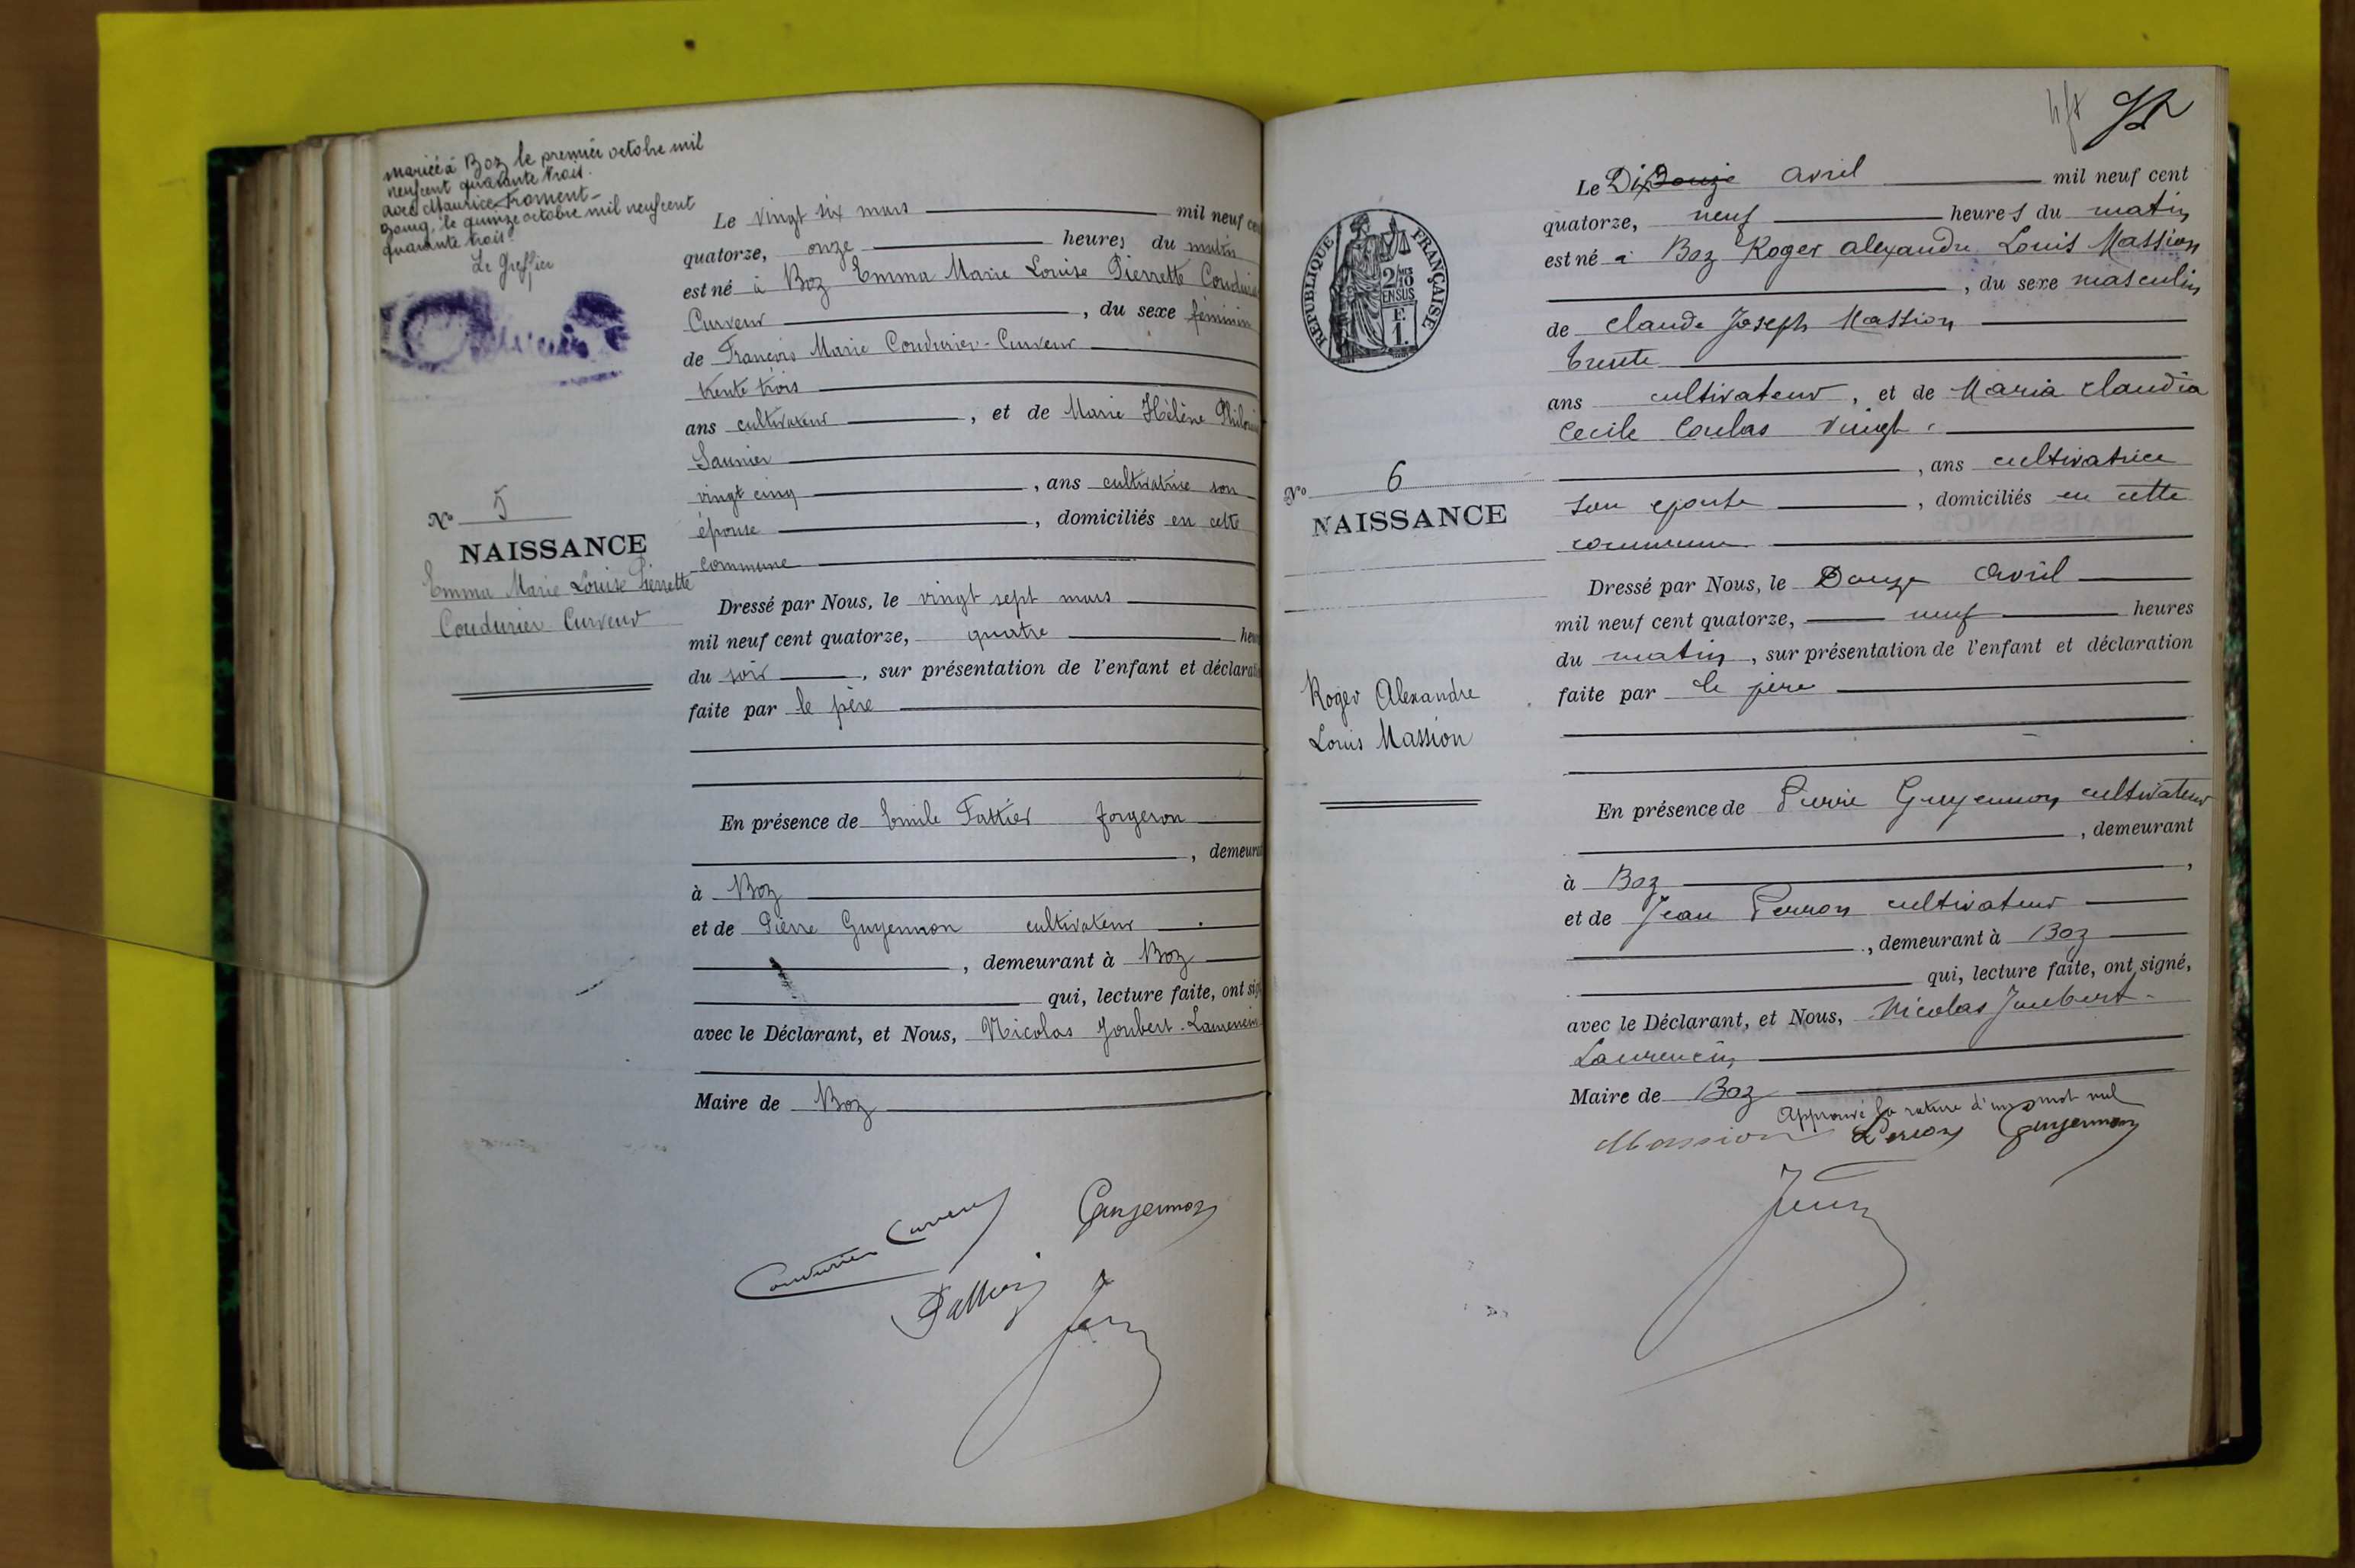 mariée à Boz le premier octobre mil
neuf cent quarante trois.
avec Maurice Froment -
Bourg, le quinze octobre mil neuf cent
quarante trois.
Le Greffier
N° 5
NAISSANCE
Emma Marie Louise Pierrette
Coudurier Curveur
Le vingt six mars mil neuf ce
quatorze, onze heures du matin
est né à Boz Emma Marie Louise Pierrette Coudurier
Curveur , du sexe féminin
de François Marie Coudurier-Curveur
trente trois
ans cultivateur , et de Marie Hélène
Saunier
vingt cinq , ans cultivatrice son
épouse , domiciliés en cette
commune
Dressé par Nous, le vingt sept mars
mil neuf cent quatorze, quatre heu
du soir , sur présentation de l'enfant et déclarati
faite par le père
En présence de Emile Fattier forgeron
, demeura
à Boz
et de Pierre Guyennon cultivateur
, demeurant à Boz
qui, lecture faite, ont sig
avec le Déclarant, et Nous, Nicolas Joubert-Laurencin
Maire de Boz
Coudurier Curveur
Guyennon
Fattier
RÉPUBLIQUE FRANÇAISE
2/10 EN SUS
F.
1.
N° 6
NAISSANCE
Roger Alexandre
Louis Massion
Le Dix Douze avril mil neuf cent
quatorze, neuf heures du matin
est né à Boz Roger Alexandre Louis Massion
, du sexe masculin
de Claude Joseph Massion
trente
ans cultivateur , et de Maria Claudia
Cecile Coulas vingt
, ans cultivatrice
son epouse , domiciliés en cette
commune
Dressé par Nous, le Douze Avril
mil neuf cent quatorze, neuf heures
du matin , sur présentation de l'enfant et déclaration
faite par le père
En présence de Pierre Guyennon cultivateur
, demeurant
à Boz ,
et de Jean Perron cultivateur
, demeurant à Boz
qui, lecture faite, ont signé,
avec le Déclarant, et Nous, Nicolas Joubert-
Laurencin
Maire de Boz
Approuvé la rature d'un mot nul
Massion Perron Guyennon